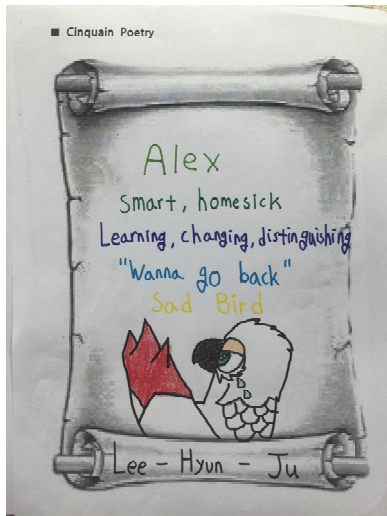 ■ Cinquain Poetry
Alex
smart, homesick
Learning, changing, distinguishing
"Wanna go back"
Sad Bird
Lee - Hyun - Ju